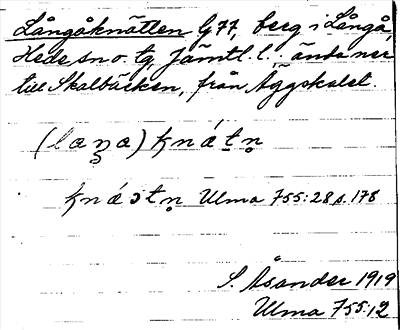 Långåknätten G77, berg i Långå,
Hede sn o. tg, Jämtl. l.: ända ner
till Skalbäcken, från Äggskalet.
(laŋa) knátn̥
knáɔtn̥ Ulma 755:28 s. 178
S. Åsander 1919
Ulma 755:12